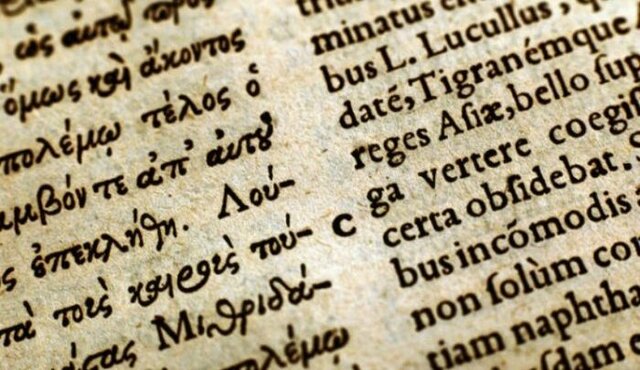 πρὸς
ὅμως καὶ ἄκοντος
πολέμῳ τέλος ὁ
τε ἀπ' αὐτοῦ
ἐπεκλήθη. Λού-
τοὺς τού-
Μιθριδά-
πολέμῳ
C
minatus
bus L. Lucullus,
daté, Tigranémque
reges Aſiæ, bello ſup
ga vertere coegiſ
certa obſidebat.
bus incómodis
non ſolùm con
tiam naphtha